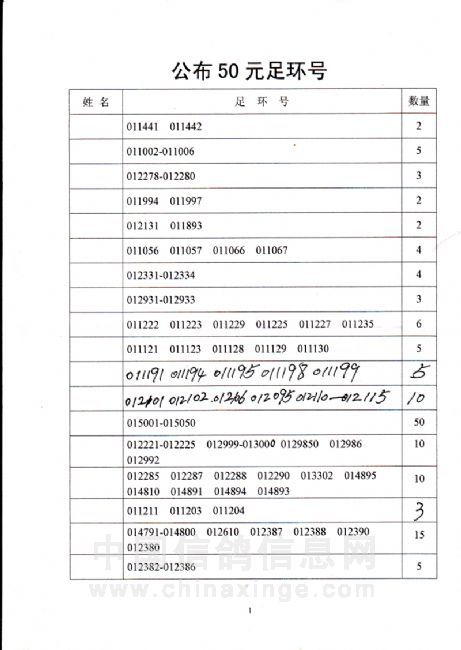 公布50元足环号
姓 名 足 环 号 数量
011441 011442 2
011002-011006 5
012278-012280 3
011994 011997 2
012131 011893 2
011056 011057 011066 011067 4
012331-012334 4
012931-012933 3
011222 011223 011229 011225 011227 011235 6
011121 011123 011128 011129 011130 5
011191 011194 011195 011198 011199 5
012102 012095 012110-012115 10
015001-015050 50
012221-012225 012999-013000 0129850 012986 10
012992
012285 012287 012288 012290 013302 014895 10
014810 014891 014894 014893
011211 011203 011204 3
014791-014800 012610 012387 012388 012390 15
012380
012382-012386 5
中国信鸽信息网
www.chinaxinge.com
1